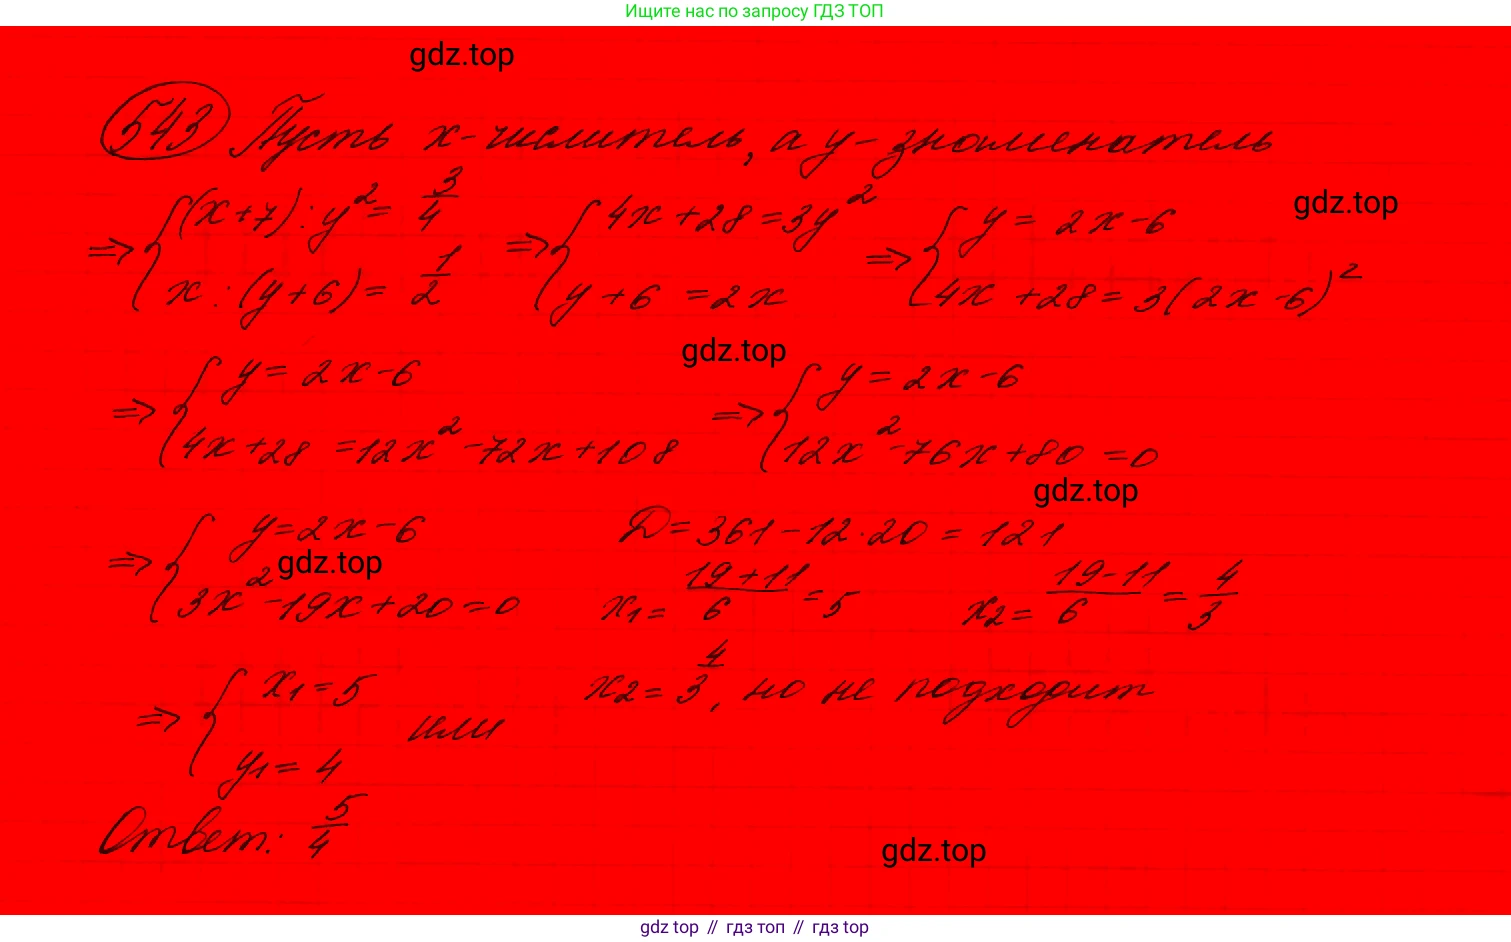 Ищите нас по запросу ГДЗ ТОП
gdz.top
543 Пусть x-числитель, а y-знаменатель
gdz.top
⇒ { (x+7) : y² = 3/4 ; x : (y+6) = 1/2 ⇒ { 4x+28=3y² ; y+6=2x ⇒ { y=2x-6 ; 4x+28=3(2x-6)²
gdz.top
⇒ { y=2x-6 ; 4x+28=12x²-72x+108 ⇒ { y=2x-6 ; 12x²-76x+80=0
gdz.top
⇒ { y=2x-6 ; 3x²-19x+20=0 D=361-12·20=121
gdz.top
x1= (19+11)/6 =5 x2= (19-11)/6 = 4/3
⇒ { x1=5 ; y1=4 или x2= 4/3, но не подходит
Ответ: 5/4
gdz.top
gdz top // гдз топ // гдз top